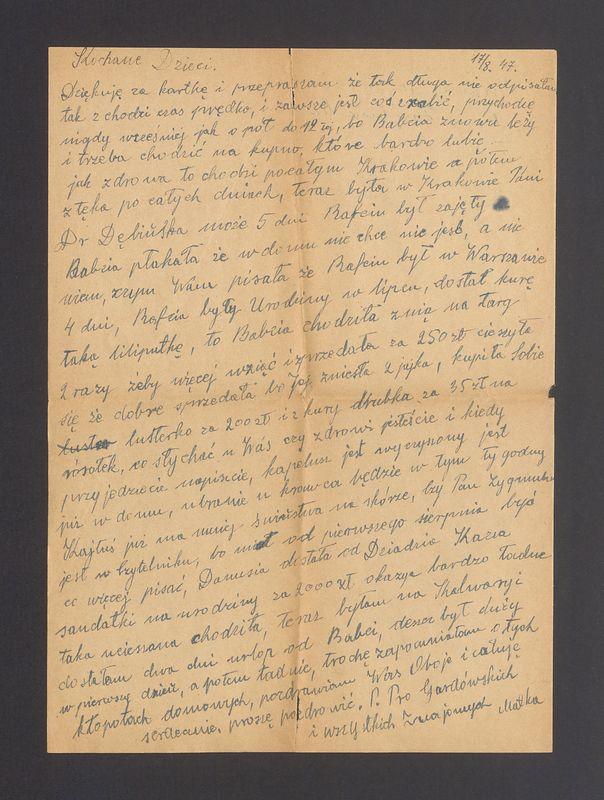 Kochane Dzieci. 17/8. 47.
Dziękuję za kartkę i przepraszam że tak długo nie odpisałam
tak zchodzi czas prędko, i zawsze jest coś zrobić, przychodzę
nigdy wcześniej jak o pół do 12 tej, bo Babcia znowu leży
i trzeba chodzić na kupno, które bardzo lubię
jak zdrowa to chodzi pocałym Krakowie a potem
stęka po całych dniach, teraz była w Krakowie Pani
Dr Dębińska może 5 dni Rafcin był zajęty
Babcia płakała że w domu nic chce nic jeść, a nie
wiem, czym Wam pisała że Rafcin był w Warszawie
4 dni, Rafcia były Urodziny w lipcu, dostał kurę
taką liliputkę, to Babcia chodziła z nią na targ
2 razy żeby więcej wziąć i sprzedała za 250 zł cieszyła
się że dobrze sprzedała bo Jej zniosła 2 jajka, kupiła Sobie
lusterko za 200 zł i z kury drubka za 35 zł na
rosołek, co słychać u Was czy zdrowi jesteście i kiedy
przyjedziecie napiszcie, kapelusz jest wyczyszony jest
już w domu, ubranie u krawca będzie w tym tygodniu
Kajtuś już ma mniej świństwa na skórze, czy Pan Zygmunt
jest w Czytelniku, bo miał od pierwszego sierpnia być
co więcej pisać, Danusia dostała od Dziadzia Kazia
sandałki na urodziny za 2000 zł okazyje bardzo ładne
taka ucieszana chodziła, teraz byłam na Kalwaryi
dostałam dwa dni urlop od Babci, deszcz był duży
w pierwszy dzień, a potem ładnie, trochę zapomniałam o tych
kłopotach domowych, pozdrawiam Was Oboje i całuję
serdecznie, proszę pozdrowić. P. Pro Gardowskich
i wszystkich znajomych Matka